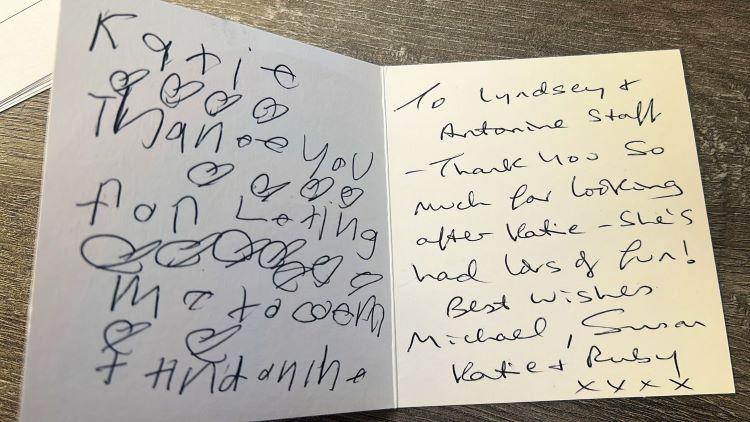 Katie
Thance you
fon Leting
me to coem
t Antanine
To Lyndsey +
Antonine Staff
- Thank you so
much for looking
after Katie - She's
had lots of fun!
Best wishes
Michael, Susan
Katie + Ruby
xxxx